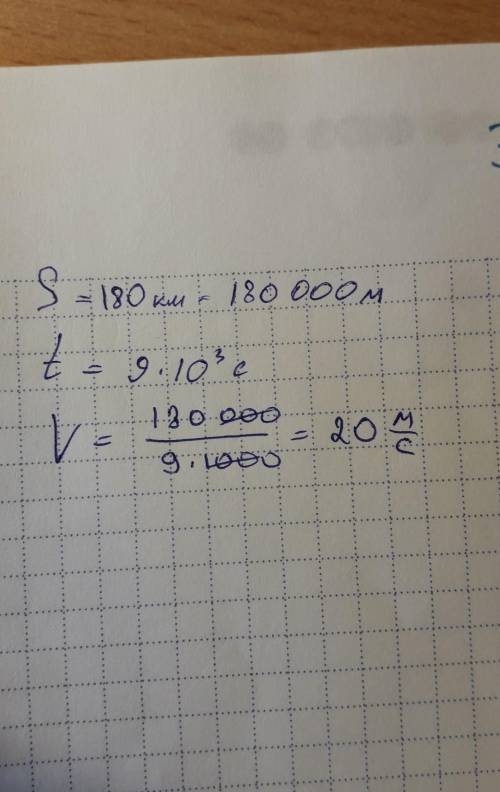 S = 180 км = 180 000 м
t = 9·10³ с
V = 180 000 / 9·1000 = 20 м/с